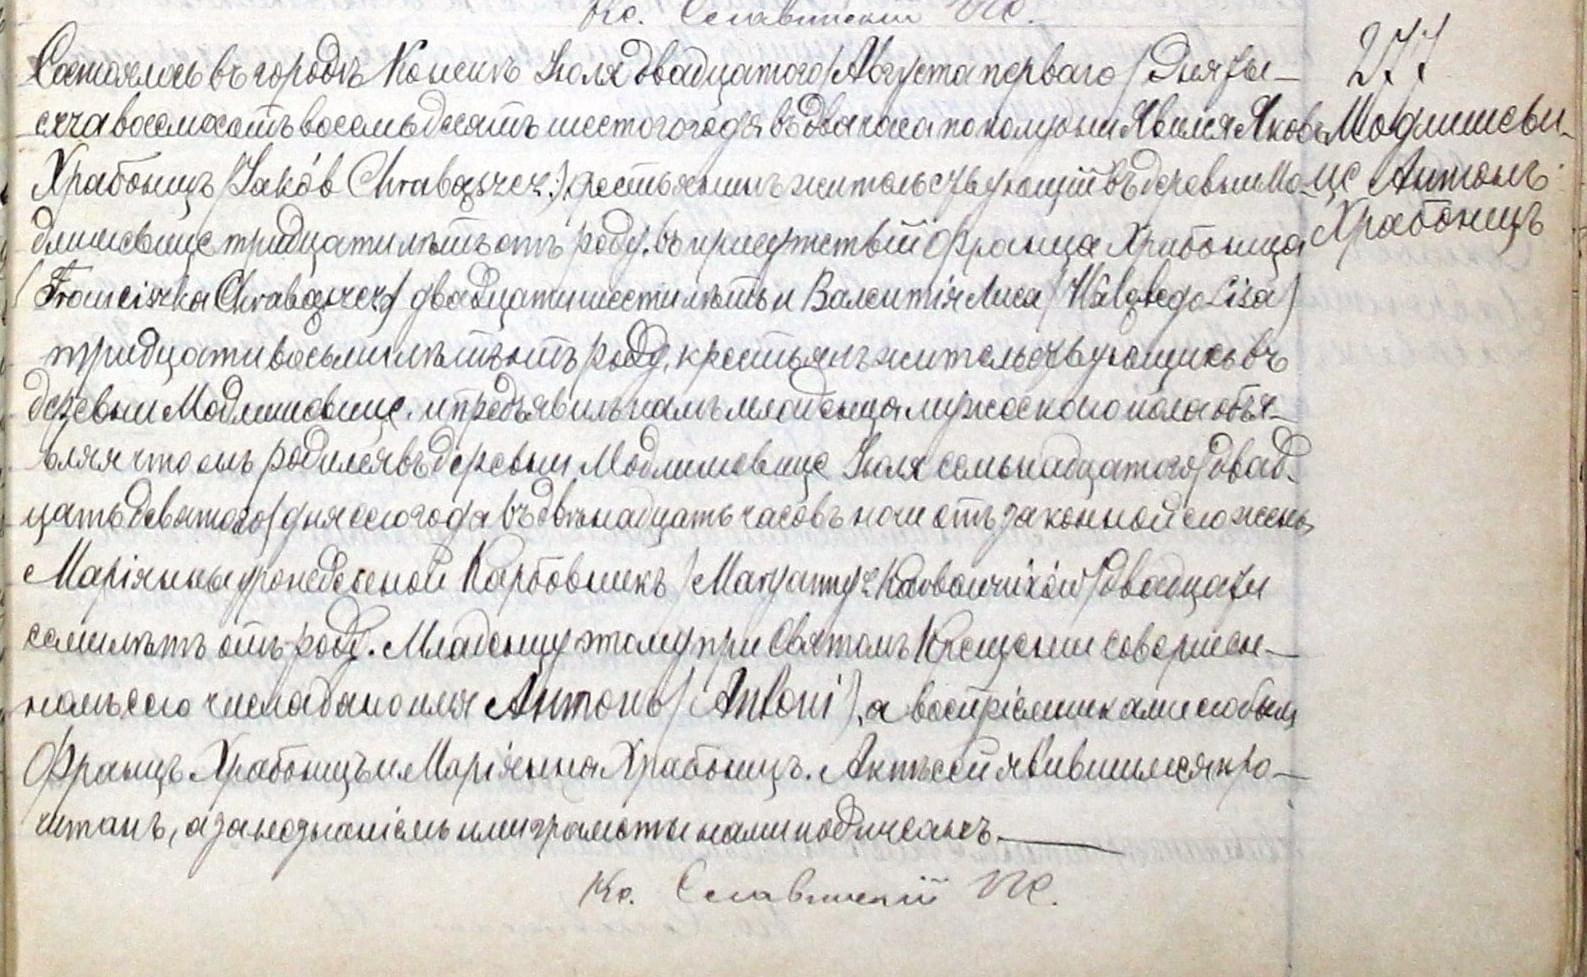 Кс. Сславинскій ПК.
277
Модлишеви-
це Антонъ
Храбонщъ
Состоялось въ городѣ Конскъ Іюля двадцатого /Августа перваго/ дня ты-
сяча восемьсотъ восемьдесятъ шестого года въ два часа по полудни Явился Яковъ
Храбонщъ /Jakób Chrabąszcz/, крестьянинъ жительствующій въ деревни Мо-
длишевице тридцати лѣтъ отъ роду, въ присутствіи Франца Храбонща
/Franciszka Chrabąszcza/ двадцати шести лѣтъ и Валентія Лиса /Walętego Lisa/
тридцати восьми лѣтъ отъ роду, крестьянъ жительствующихъ въ
деревни Модлишевице, и предъявилъ намъ младенца мужескаго пола объя-
вляя что онъ родился въ деревни Модлишевице Іюля семьнадцатого /двад-
цать девятого/ дня сего года въ двѣнадцать часовъ ночи отъ законной его жены
Маріянны урожденной Карбовникъ двадцати
семи лѣтъ отъ роду. Младенцу этому при Святомъ Крещении совершен-
номъ сего числа дано имя Антонъ /Antoni/, а воспріемниками его были
Францъ Храбонщъ и Маріянна Храбонщъ. Актъ сей явившимся про-
читанъ, а за незнаніемъ ими грамоты нами подписанъ.
Кс. Сславинскій ПК.